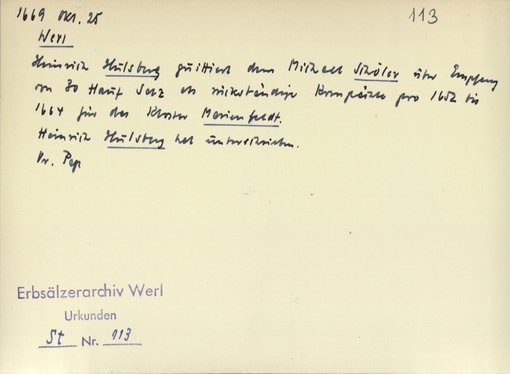 1669 Okt. 25
113
Werl
Heinrich Hulsberg quittiert dem Michael Schöler über Empfang
von 30 Hauf Salz als rückständige pro 1652 bis
1664 für das Kloster Marienfeldt.
Heinrich Hulsberg hat unterschrieben.
Or. Pap
Erbsälzerarchiv Werl
Urkunden
St Nr. 113